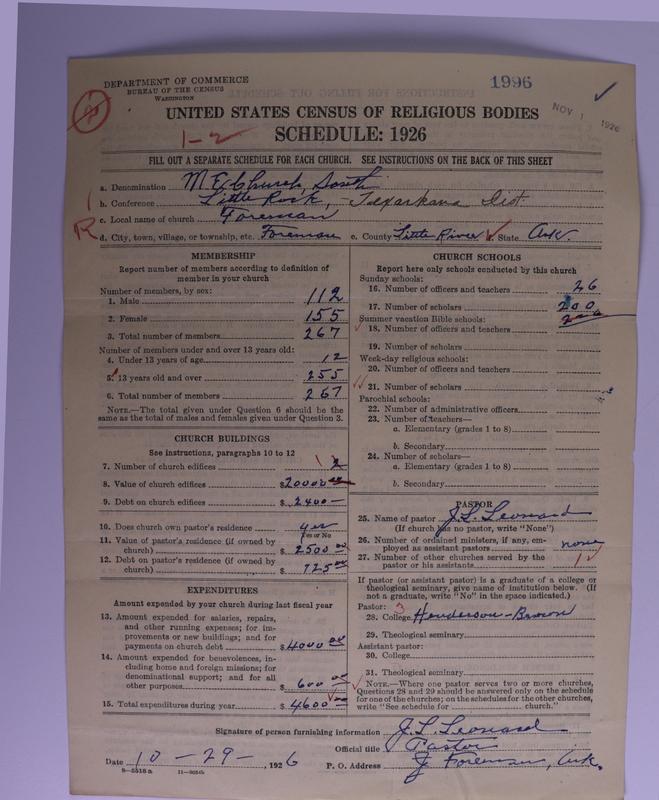 DEPARTMENT OF COMMERCE
BUREAU OF THE CENSUS
WASHINGTON
1996
NOV 1 1926
UNITED STATES CENSUS OF RELIGIOUS BODIES
1-2
SCHEDULE: 1926
FILL OUT A SEPARATE SCHEDULE FOR EACH CHURCH. SEE INSTRUCTIONS ON THE BACK OF THIS SHEET
a. Denomination M.E. Church, South
b. Conference Little Rock, - Texarkana Dist.
c. Local name of church Foreman
R
d. City, town, village, or township, etc. Foreman e. County Little River f. State Ark.
MEMBERSHIP
Report number of members according to definition of
member in your church
Number of members, by sex:
1. Male 112
2. Female 155
3. Total number of members 267
Number of members under and over 13 years old:
4. Under 13 years of age 12
5. 13 years old and over 255
6. Total number of members 267
NOTE.—The total given under Question 6 should be the
same as the total of males and females given under Question 3.
CHURCH BUILDINGS
See instructions, paragraphs 10 to 12
7. Number of church edifices 1
8. Value of church edifices $20000
9. Debt on church edifices $2400—
10. Does church own pastor's residence yes
Yes or No
11. Value of pastor's residence (if owned by
church) $2500 00
12. Debt on pastor's residence (if owned by
church) $725 00
EXPENDITURES
Amount expended by your church during last fiscal year
13. Amount expended for salaries, repairs,
and other running expenses; for im-
provements or new buildings; and for
payments on church debt $4000 00
14. Amount expended for benevolences, in-
cluding home and foreign missions; for
denominational support; and for all
other purposes $600 00
15. Total expenditures during year $4600 00
CHURCH SCHOOLS
Report here only schools conducted by this church
Sunday schools:
16. Number of officers and teachers 26
17. Number of scholars 200
Summer vacation Bible schools:
18. Number of officers and teachers
19. Number of scholars
Week-day religious schools:
20. Number of officers and teachers
21. Number of scholars
Parochial schools:
22. Number of administrative officers
23. Number of teachers—
a. Elementary (grades 1 to 8)
b. Secondary
24. Number of scholars—
a. Elementary (grades 1 to 8)
b. Secondary
PASTOR
25. Name of pastor J. L. Leonard
(If church has no pastor, write "None")
26. Number of ordained ministers, if any, em-
ployed as assistant pastors none
27. Number of other churches served by the
pastor or his assistants 1
If pastor (or assistant pastor) is a graduate of a college or
theological seminary, give name of institution below. (If
not a graduate, write "No" in the space indicated.)
Pastor: 3
28. College Henderson-Brown
29. Theological seminary
Assistant pastor:
30. College
31. Theological seminary
NOTE.—Where one pastor serves two or more churches,
Questions 28 and 29 should be answered only on the schedule
for one of the churches; on the schedules for the other churches,
write "See schedule for church."
Signature of person furnishing information J. L. Leonard
Official title Pastor
Date 10-29-, 1926 P. O. Address Foreman, Ark.
8-5518 a